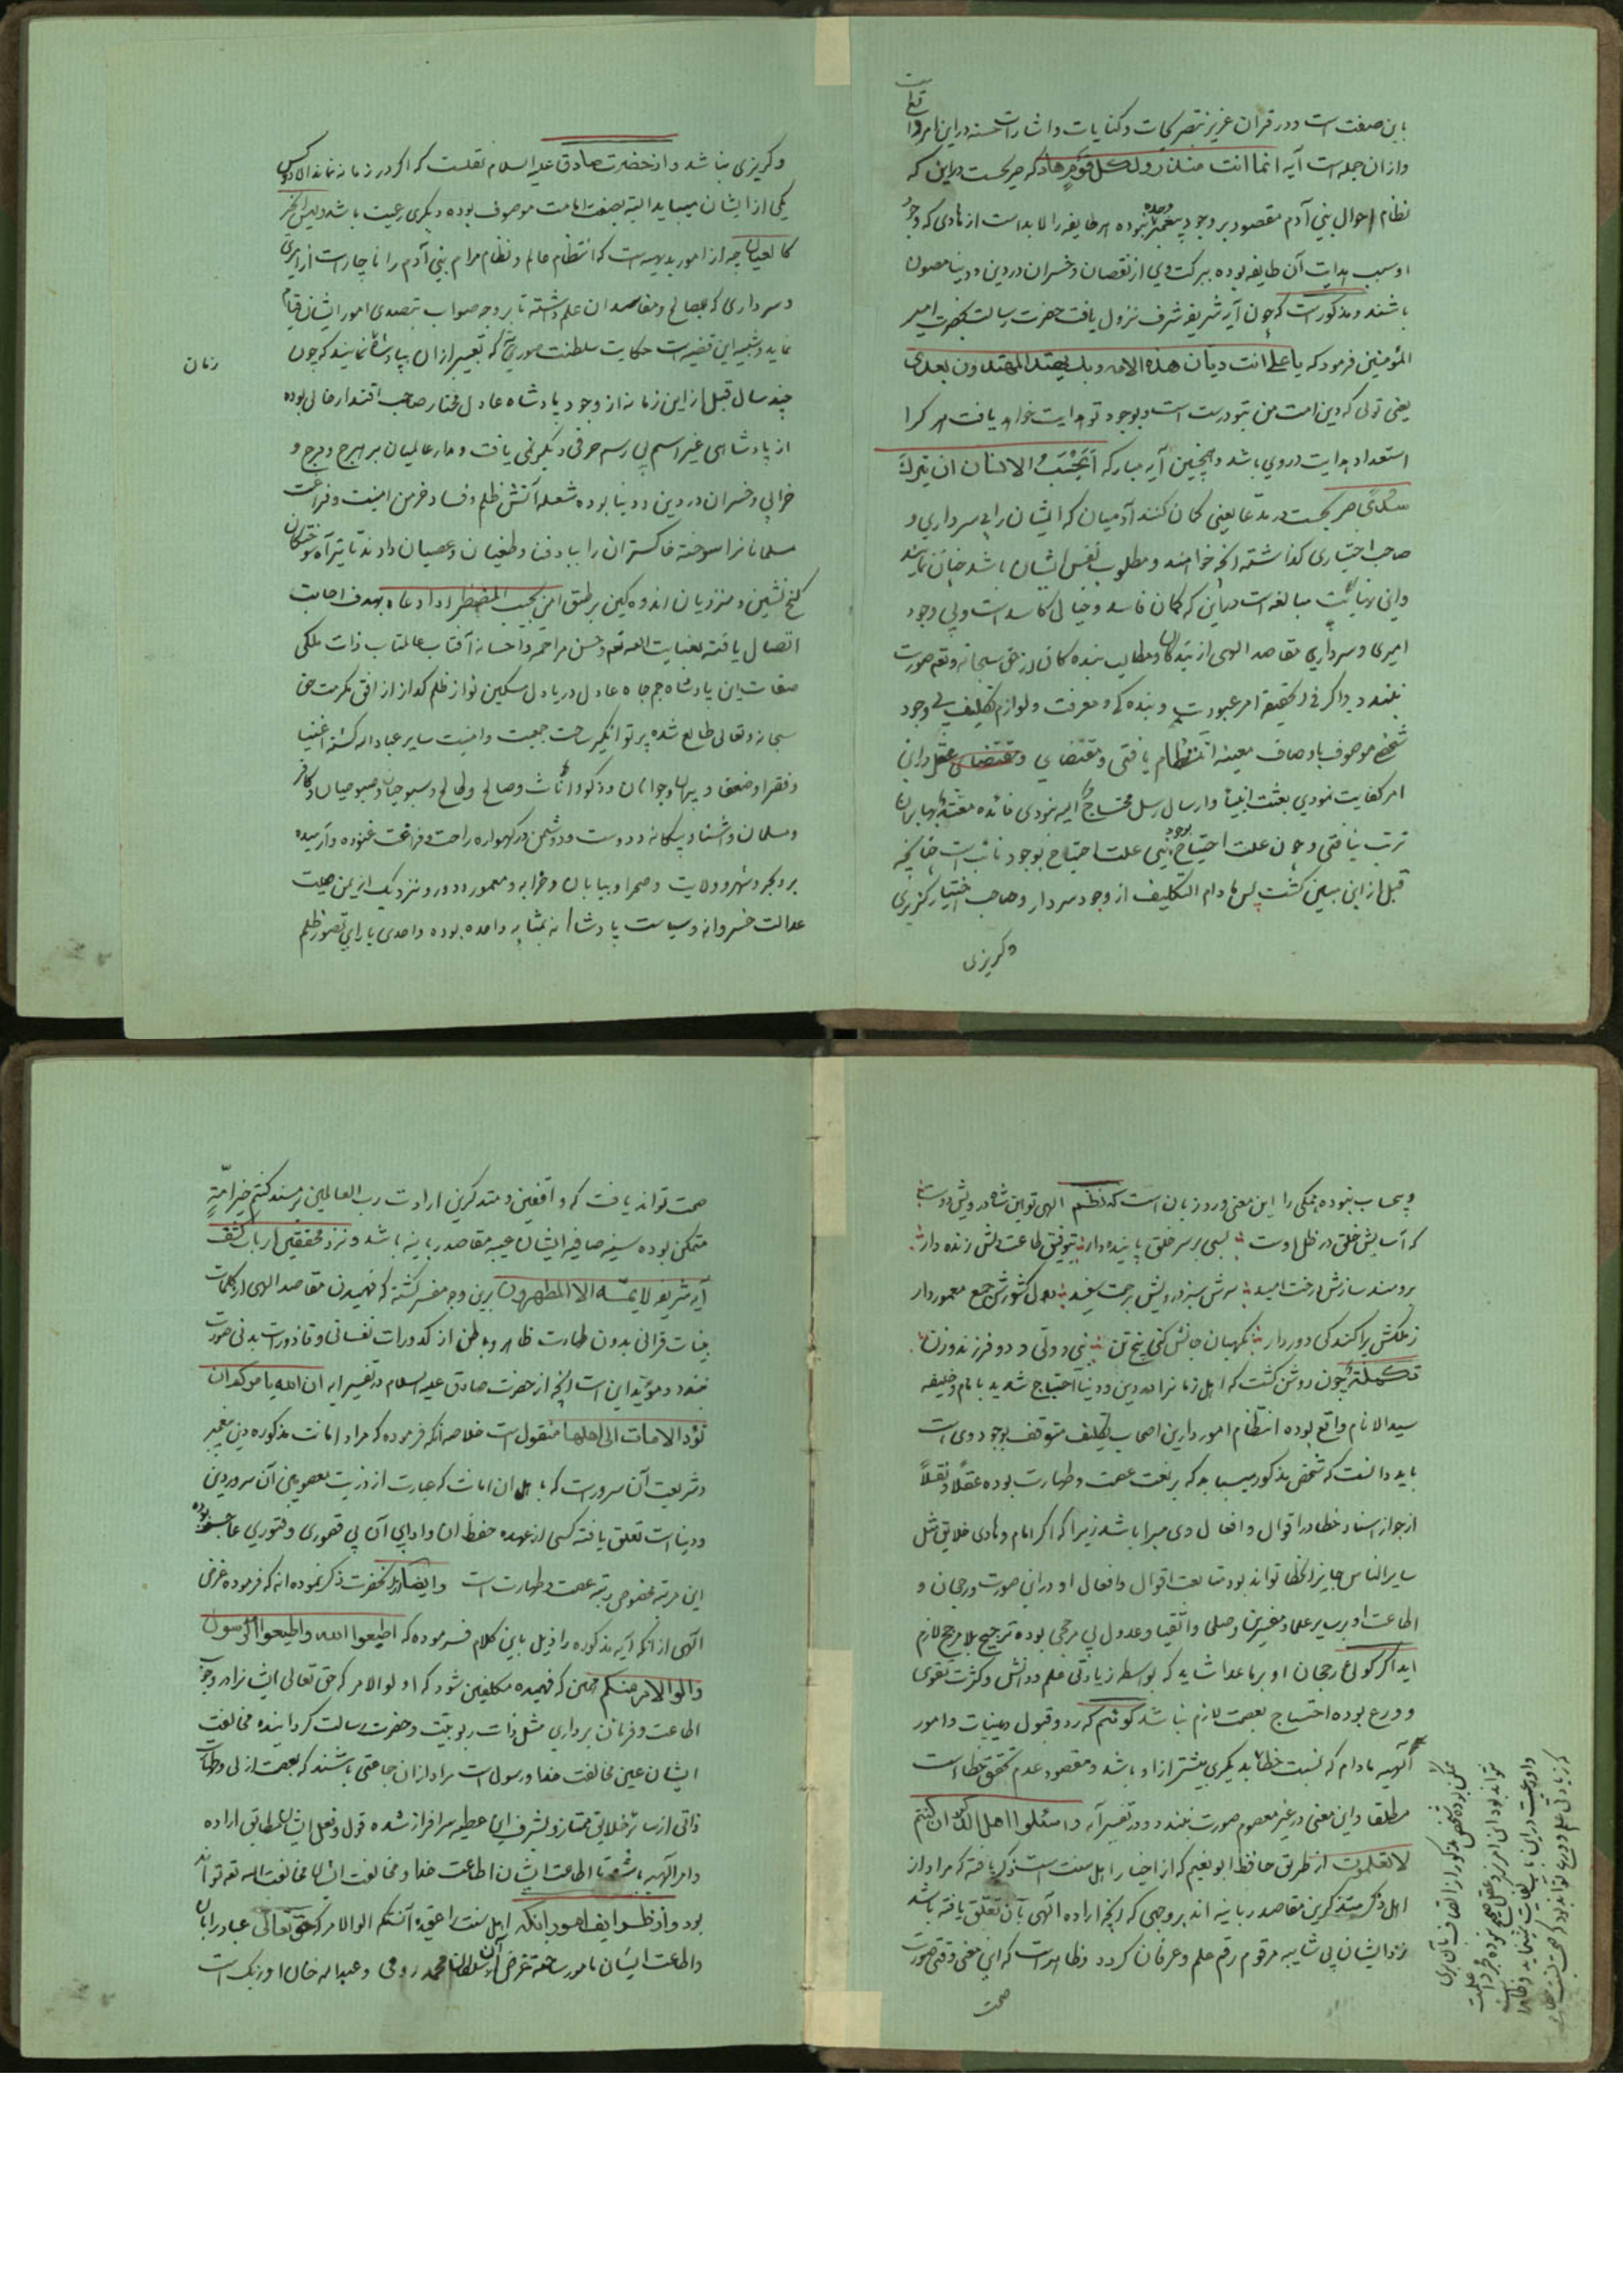 باین صفت است و در قران عزیز بتصریحات و کنایات و اشارات حسنه در این امر واقع است
و از ان جمله است آیه انما انت منذر ولکل قوم هاد که صریحست در این که
نظام احوال بنی آدم مقصود بر وجود پیغمبر نبوده هر طایفه را لابد است از هادی که وجود
او سبب هدایت آن طایفه بوده ببرکت وی از نقصان و خسران در دین و دنیا مصون
باشند و مذکور است که چون آیه شریفه شرف نزول یافت حضرت رسالت بحضرت امیر
المؤمنین فرمود که یا علی انت دیان هذه الامه وبك یهتد المهتدون بعدی
یعنی توئی که دین امت من بتو درست است و بوجود تو هدایت خواهد یافت هر کرا
استعداد هدایت در وی باشد و همچنین آیه مبارکه أیحسب الانسان ان یترك
سدی صریحست در مدعا یعنی کمان کنند آدمیان که ایشان را بی سرداری و
صاحب اختیاری کذاشته انچه خواهند و مطلوب نفس ایشان باشد چنان نمایند
مبالغه است در این که کمان فاسد و خیال کاسد است و بی وجود
امیری و سرداری مقاصد الهی از بندکان و مطالب بنده کان از حق سبحانه و تعالی صورت
نبندد و اکر فی الحقیقه امر عبودیت و بنده کی و معرفت و لوازم تکلیف بی وجود
شخصی موصوف باوصاف معینه انتظام یافتی و مقتضای عقل در این
امر کفایت نمودی بعثت انبیا و ارسال رسل محتاج الیه نبودی فائده معتد بها بران
ترتب نیافتی و چون علت احتیاج بوجود نبی علت احتیاج بوجود نائب است چنانچه
قبل از این مبین کشت پس مادام التکلیف از وجود سردار و صاحب اختیار کزیری
و کریزی
و کریزی نباشد و از حضرت صادق علیه السلام نقلست که اکر در زمانه نماند الا دو کس
یکی از ایشان میباید البته بصفت امامت موصوف بوده و دیکری رعیت باشد و لیس الخبر
کالعیان چه از امور بدیهیه است که انتظام عالم و نظام مرام بنی آدم را ناچار است از امیری
و سرداری که بمصالح و مفاسد ان علم داشته تا بر وجه صواب بتصدی امور ایشان قیام
نماید و شبیه این قضیه است حکایت سلطنت صوری که تعبیر از ان بپادشاه نمایند که چون
زمان
چند سال قبل از این زمانه از وجود پادشاه عادل مختار صاحب اقتدار خالی بوده
از پادشاهی غیر اسم بی رسم حرفی دیکر نمی یافت و مدار عالمیان بر هرج و مرج و
خرابی و خسران در دین و دنیا بوده شعله آتش ظلم و فساد خرمن امنیت و فراغت
مسلمانانرا سوخته خاکستر ان را بباد فنا و طغیان و عصیان دادند تا تیر آه سوختکان
کنج نشین و منزویان اندوه کین بر طبق امن یجیب المضطر اذا دعاه بهدف اجابت
اتصال یافته بعنایت الله تعم و حسن مراحمه و احسانه آفتاب عالمتاب ذات ملکی
صفات این پادشاه جم جاه عادل دریا دل مسکین نواز ظلم کداز از افق مکرمت حق
سبحانه و تعالی طالع شده پرتو انکیز ساحت جمعیت و امنیت سایر عباد الله کشته اغنیا
و فقرا و ضعفا و پیران و جوانان و ذکور و اناث و صالح و طالح
و مسلمان و آشنا و بیکانه و دوست و دشمن در کهواره راحت و فراغت غنوده و آرمیده
بر و بحر و شهر و ولایت و صحرا و بیابان و خرابه و معمور و دور و نزدیک از یمن صیت
عدالت خسروانه و سیاست پادشاهانه بمثابه واحده بوده واحدی یارای تصور ظلم
و حساب نبوده همکی را این معنی ورد زبان است که نظم الهی تو این شاه درویش دوست
که آسایش خلق در ظل اوست بسی بر سر خلق پاینده دار بتوفیق طاعت دلش زنده دار
برومند سازش درخت امید سرش سبز و رویش برحمت سفید دل کشورش جمع معمور دار
ز ملکش پراکندکی دور دار نکهبان جانش کنی پنج تن نبی و ولی و دو فرزند و زن
تکملة چون روشن کشت که اهل زمانرا در دین و دنیا احتیاج شدید بامام و خلیفه
سید الانام واقع بوده انتظام امور دارین اصحاب تکلیف متوقف بوجود وی است
باید دانست که شخص مذکور میباید که بر نعت عصمت و طهارت بوده عقلا و نقلا
از جواز اسناد خطا در اقوال و افعال وی مبرا باشد زیرا که اکر امام و هادی خلایق مثل
سایر الناس جایز الخطا تواند بود متابعت اقوال و افعال او در این صورت و رجحان و
اطاعت او بر سایر علما و مفسرین و صلحا و اتقیا و عدول بی مرجحی بوده ترجیح بلا مرجح لازم
اید اکر کوئی رجحان او بر ماعدا شاید که بواسطه زیادتی علم و دانش و کثرت تقوی
و ورع بوده احتیاج بعصمت لازم نباشد کوئیم که رد و قبول دینیات و امور
آلهیه مادام که نسبت خطا به یکمرتبه بیشتر از او باشد و مقصود عدم تحقق خطا است
مطلقا و این معنی در غیر معصوم صورت نبندد و در تفسیر آیه و اسئلوا اهل الذکر ان کنتم
لا تعلمون از طریق حافظ ابو نعیم که از اخیار اهل سنت است ذکر یافته که مراد از
اهل ذکر متذکرین مقاصد ربانیه اند بر وجهی که انچه اراده آلهی بآن تعلق یافته باشد
نزد ایشان بی شایبه مرقوم رقم علم و عرفان کردد و ظاهر است که این معنی وقتی صورت
صحت
صحت تواند یافت که واقفین و متذکرین ارادت رب العالمین بر مسند کنتم خیر امة
متمکن بوده سینه صافیه ایشان عیبه مقاصد ربانیه باشد و نزد محققین ارباب کشف
آیه شریفه لا یمسه الا المطهرون برین وجه مفسر کشته که فهمیدن مقاصد الهی از کلمات
بینات قرانی بدون طهارت ظاهر و باطن از کدورات نفسانی و قاذورات بدنی صورت
نبندد و مؤید این است انچه از حضرت صادق علیه السلام در تفسیر ایه ان الله یامرکم ان
تؤدوا الامانات الی اهلها منقول است خلاصه آنکه فرموده که مراد امانت مذکوره دین پیغمبر
و شریعت آن سرور است که باهل ان امانت که عبارت از ذریت معصومین آن سرور دین
و دنیا است تعلق یافته کسی از عهده حفظ ان و ادای آن بی قصوری و فتوری
این مرتبه مخصوص رتبه عصمت و طهارت است و ایضا از انحضرت ذکر نموده اند که فرموده غرض
آلهی از انکه آیه مذکوره را ذیل باین کلام فرموده که اطیعوا الله و اطیعوا الرسول
و اولوا الامر منکم همین که فهمیده مکلفین شود که اولوا الامر که حق تعالی ایشانرا در وجوب
اطاعت و فرمان برداری مثل ذات ربوبیت و حضرت رسالت کردانیده مخالفت
ایشان عین مخالفت خدا و رسول است مراد از ان جماعتی باشند که بعصمت ازلی و طهارت
ذاتی از سایر خلایق ممتاز و بشرف این عطیه سرافراز شده قول و فعل ایشان مطابق اراده
و امر آلهیه باشد تا اطاعت ایشان اطاعت خدا و مخالفت ایشان مخالفت الله تعم تواند
بود و از ظرایف امور انکه اهل سنت را عقیده آنستکه الوا الامر که حق تعالی عباد را بان
و اطاعت ایشان مامور ساخته غرض آن سلطان محمد رومی و عبد الله خان اوزبک است